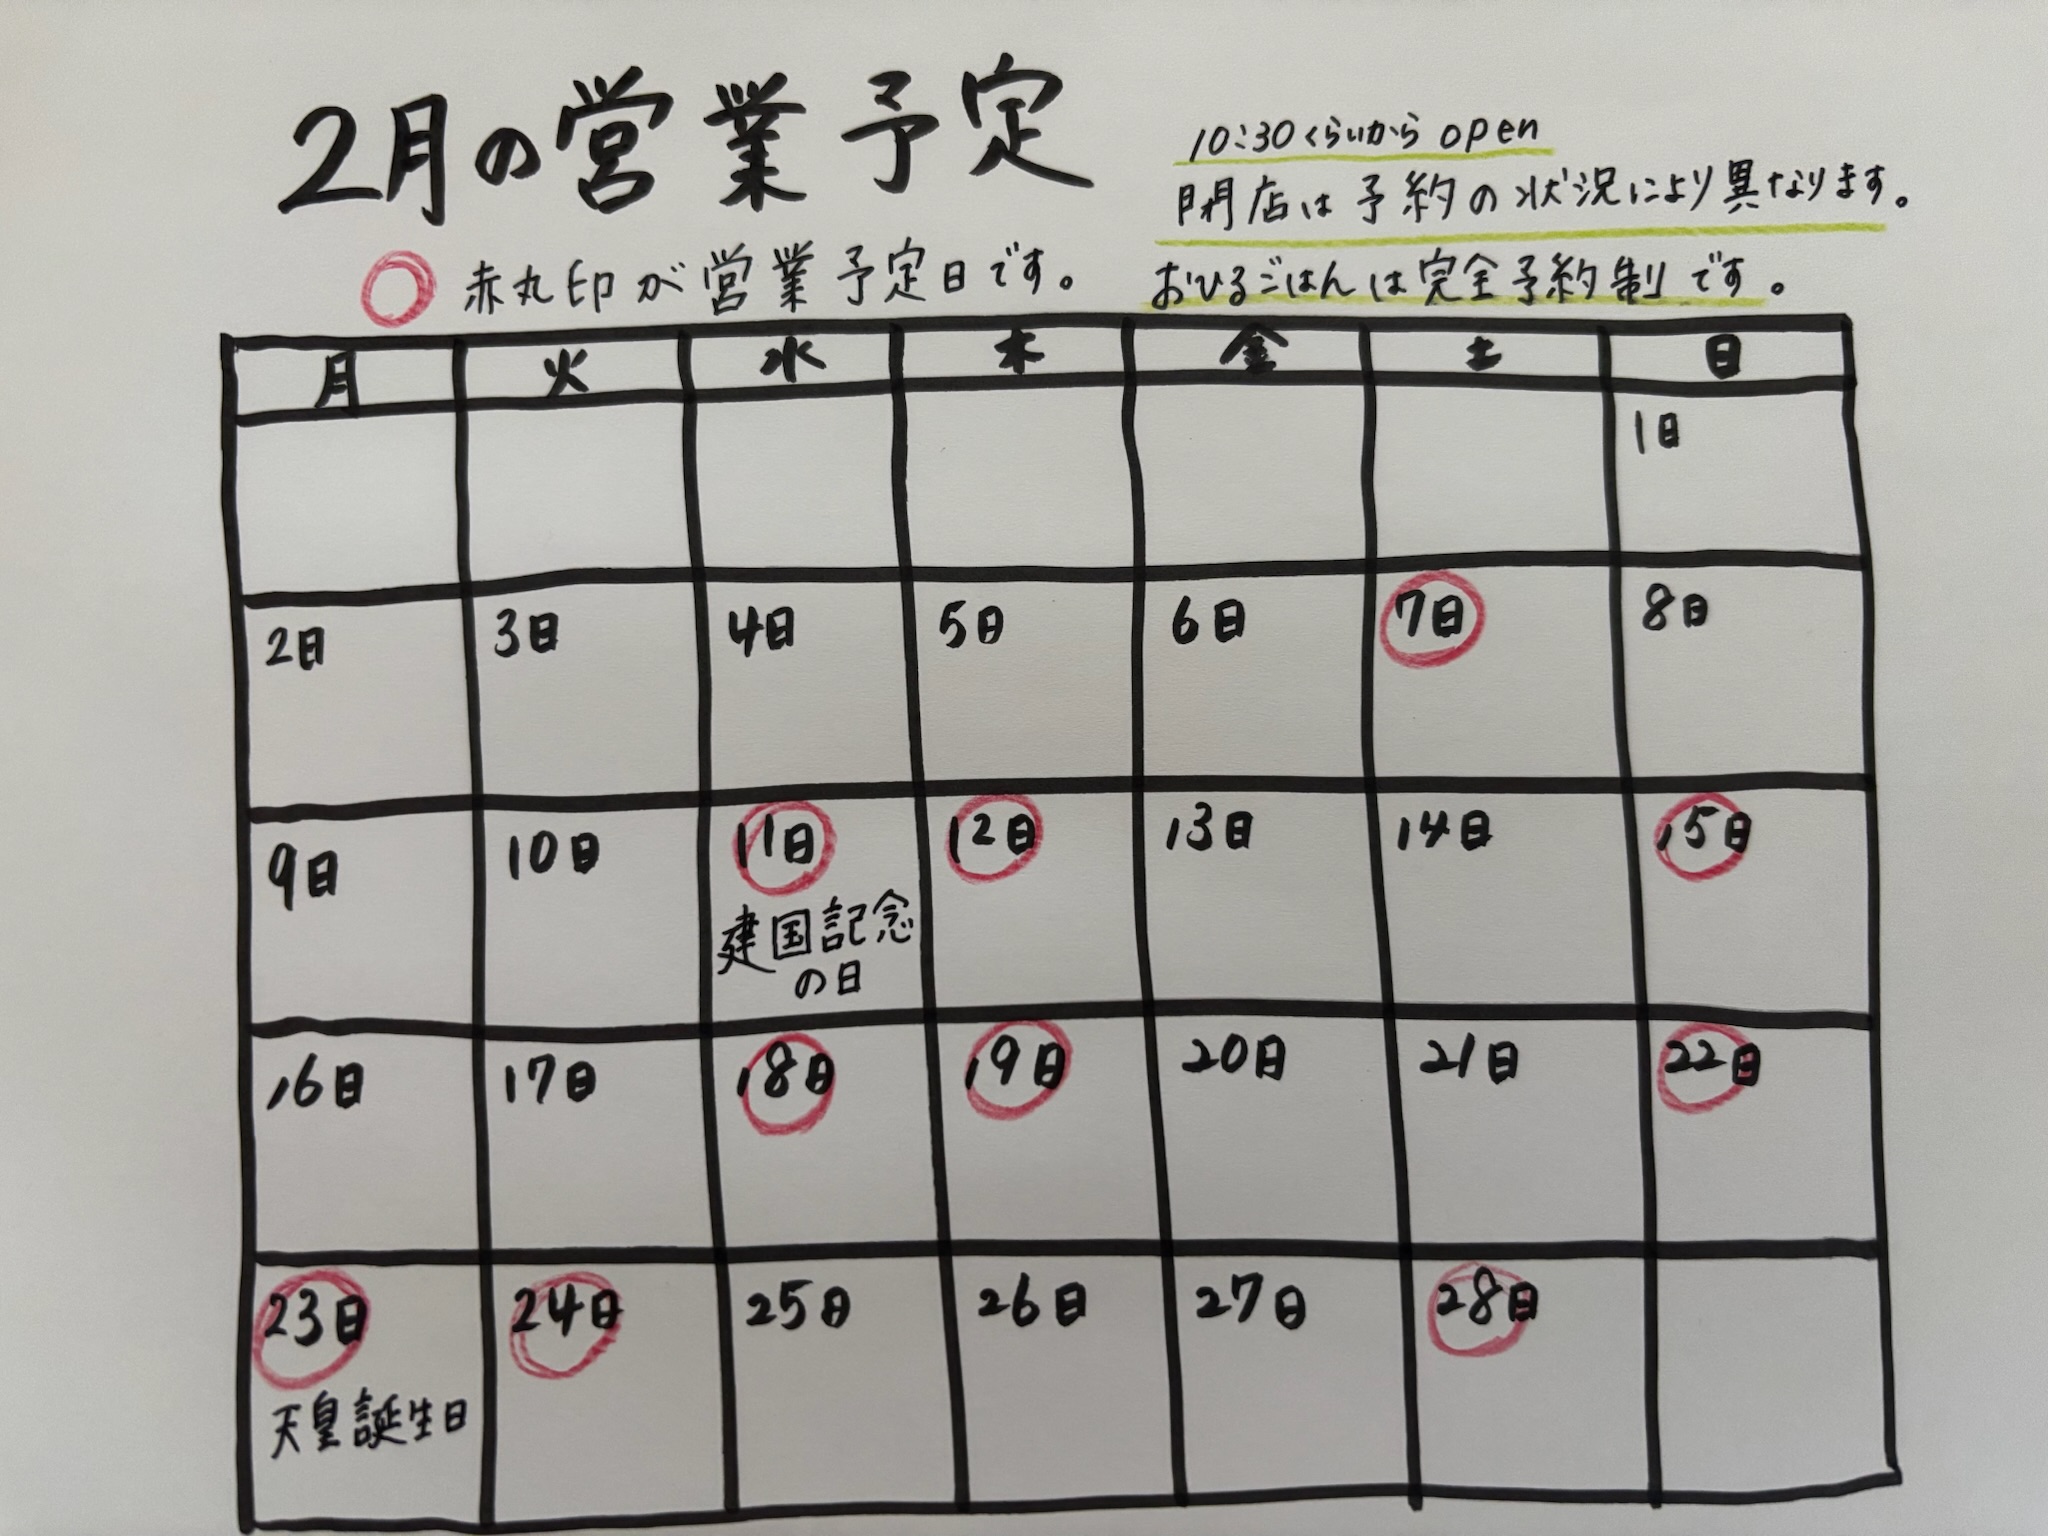 2月の営業予定
10:30くらいから open
閉店は予約の状況により異なります。
赤丸印が営業予定日です。
おひるごはんは完全予約制です。
月 火 水 木 金 土 日
1日
2日 3日 4日 5日 6日 7日 8日
9日 10日 11日 12日 13日 14日 15日
建国記念
の日
16日 17日 18日 19日 20日 21日 22日
23日 24日 25日 26日 27日 28日
天皇誕生日